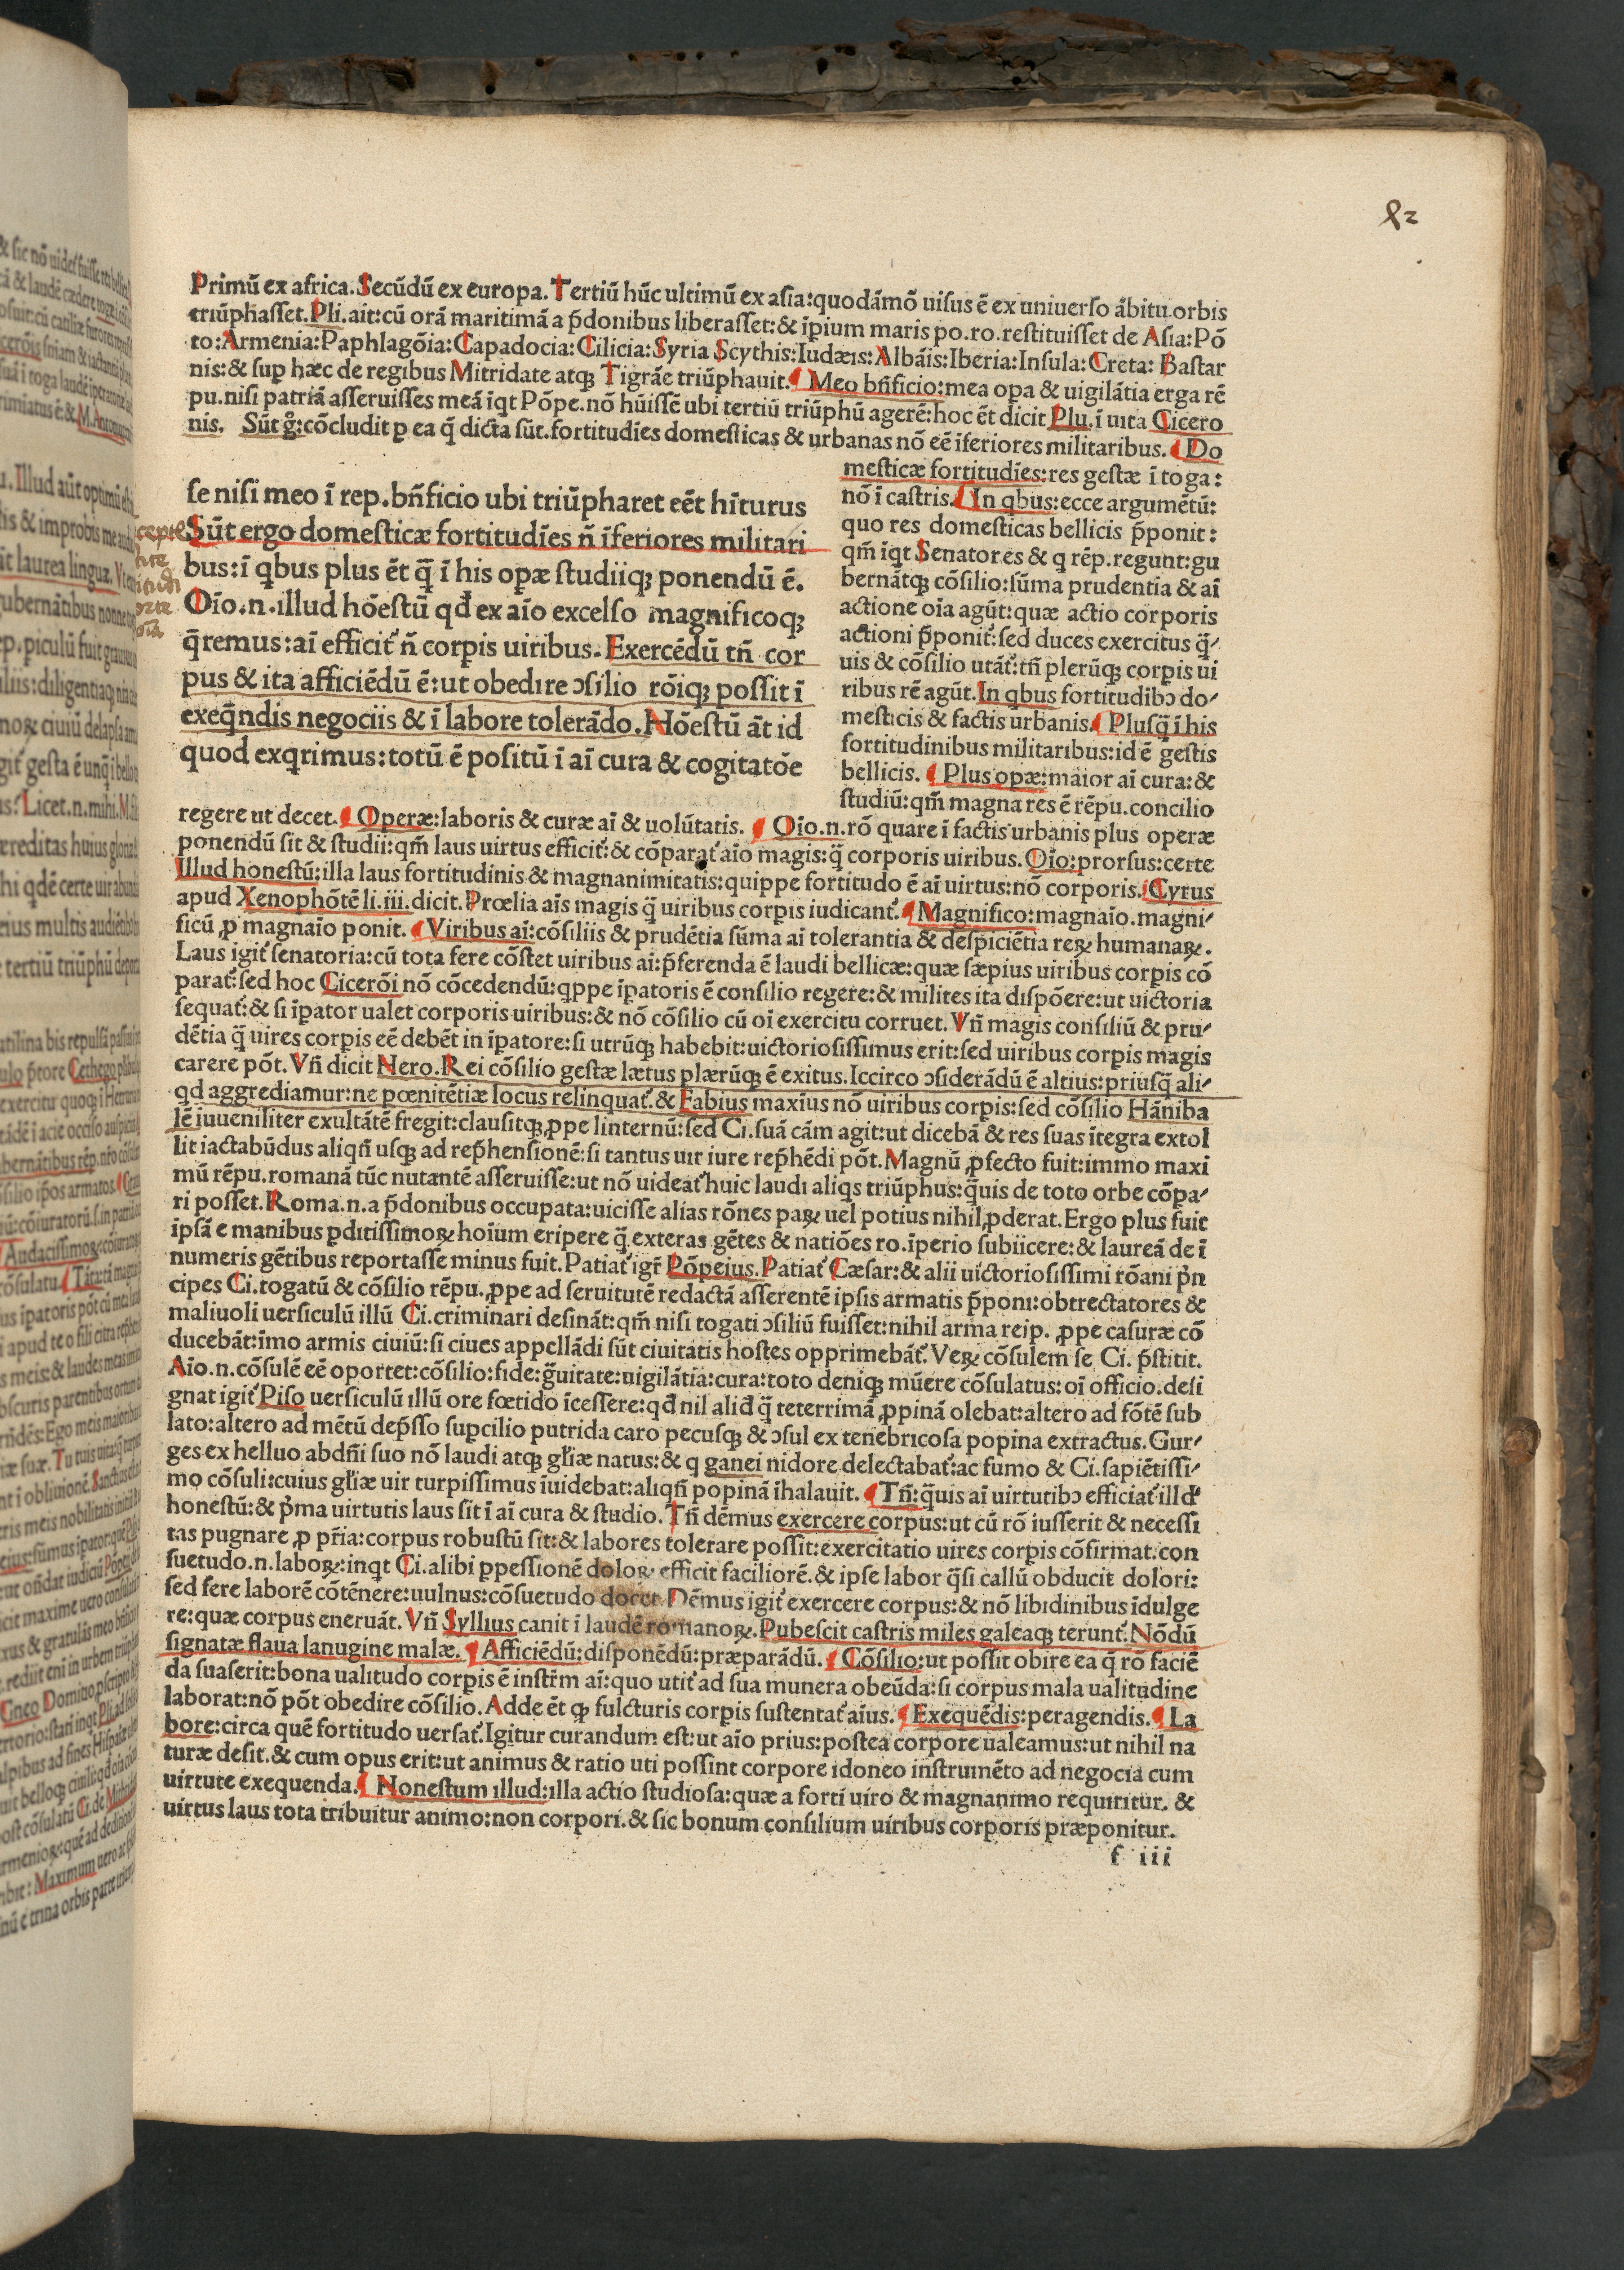 82
Primū ex africa. Secūdū ex europa. Tertiū hūc ultimū ex asia: quodāmō uisus ē ex uniuerso ābitu orbis
triūphasset. Pli. ait: cū orā maritimā a p̄donibus liberasset: & īpium maris po. ro. restituisset de Asia: Pō
to: Armenia: Paphlagōia: Capadocia: Cilicia: Syria Scythis: Iudæis: Albāis: Iberia: Insula: Creta: Bastar
nis: & sup hæc de regibus Mitridate atqꝫ Tigrāe triūphauit. ¶ Meo bn̄ficio: mea opa & uigilātia erga rē
pu. nisi patriā asseruisses meā īqt Pōpe. nō hūissē ubi tertiū triūphū agerē: hoc ēt dicit Plu. ī uita Cicero
nis. Sūt g̊: cōcludit ꝑ ea q̄ dicta sūt. fortitudīes domesticas & urbanas nō eē īferiores militaribus. ¶ Do
se nisi meo ī rep. bn̄ficio ubi triūpharet eēt hīturus
Sūt ergo domesticæ fortitudīes n̄ īferiores militari
bus: ī qbus plus ēt q̄ ī his opæ studiiqꝫ ponendū ē.
Oīo. n. illud hōestū qđ ex aīo excelso magnificoqꝫ
q̄remus: aī efficit᷑ n̄ corpis uiribus. Exercēdū tn̄ cor
pus & ita afficiēdū ē: ut obedire ↄsilio rōiqꝫ possit ī
exeq̄ndis negociis & ī labore tolerādo. Hōestū āt id
quod exqrimus: totū ē positū ī aī cura & cogitatōe
mesticæ fortitudīes: res gestæ ī toga:
nō ī castris. ¶ In qbus: ecce argumētū:
quo res domesticas bellicis p̄ponit:
qm̄ īqt Senatores & q rēp. regunt: gu
bernātqꝫ cōsilio: sūma prudentia & aī
actione oīa agūt: quæ actio corporis
actioni p̄ponit᷑: sed duces exercitus q̄/
uis & cōsilio utāt᷑: tn̄ plerūqꝫ corpis ui
ribus rē agūt. In qbus fortitudibↄ do/
mesticis & factis urbanis. ¶ Plusq̄ ī his
fortitudinibus militaribus: id ē gestis
bellicis. ¶ Plus opæ: maior aī cura: &
studiū: qm̄ magna res ē rēpu. concilio
regere ut decet. ¶ Operæ: laboris & curæ aī & uolūtatis. ¶ Oīo. n. rō quare ī factis urbanis plus operæ
ponendū sit & studii: qm̄ laus uirtus efficit᷑: & cōparat᷑ aīo magis: q̄ corporis uiribus. Oīo: prorsus: certe
Illud honestū: illa laus fortitudinis & magnanimitatis: quippe fortitudo ē aī uirtus: nō corporis. Cyrus
apud Xenophōtē li. iii. dicit. Prœlia aīs magis q̄ uiribus corpis iudicant᷑. ¶ Magnifico: magnaīo. magni/
ficū ꝓ magnaīo ponit. ¶ Viribus aī: cōsiliis & prudētia sūma aī tolerantia & despiciētia reꝝ humanaꝝ.
Laus igit᷑ senatoria: cū tota fere cōstet uiribus aī: p̄ferenda ē laudi bellicæ: quæ sæpius uiribus corpis cō
parat᷑: sed hoc Cicerōi nō cōcedendū: qppe īpatoris ē consilio regere: & milites ita dispōere: ut uictoria
sequat᷑: & si īpator ualet corporis uiribus: & nō cōsilio cū oī exercitu corruet. Vn̄ magis consiliū & pru/
dētia q̄ uires corpis eē debēt in īpatore: si utrūqꝫ habebit: uictoriosissimus erit: sed uiribus corpis magis
carere pōt. Vn̄ dicit Nero. Rei cōsilio gestæ lætus plærūqꝫ ē exitus. Iccirco ↄsiderādū ē altius: priusq̄ ali/
qd aggrediamur: ne pœnitētiæ locus relinquat᷑. & Fabius maxīus nō uiribus corpis: sed cōsilio Hāniba
lē iuueniliter exultātē fregit: clausitqꝫ ꝓpe linternū: sed Ci. suā cām agit: ut dicebā & res suas ītegra extol
lit iactabūdus aliqn̄ usqꝫ ad rep̄hensionē: si tantus uir iure rep̄hēdi pōt. Magnū ꝓfecto fuit: immo maxi
mū rēpu. romanā tūc nutantē asseruisse: ut nō uideat᷑ huic laudi aliqs triūphus: q̄uis de toto orbe cōpa/
ri posset. Roma. n. a p̄donibus occupata: uicisse alias rōnes paꝝ uel potius nihil ꝓderat. Ergo plus fuit
ipsā e manibus pditissimoꝝ hoīum eripere q̄ exteras gētes & natiōes ro. īperio subiicere: & laureā de ī
numeris gētibus reportasse minus fuit. Patiat᷑ igr̄ Pōpeius. Patiat᷑ Cæsar: & alii uictoriosissimi rōani p̄n
cipes Ci. togatū & cōsilio rēpu. ꝓpe ad seruitutē redactā asserentē ipsis armatis p̄poni: obtrectatores &
maliuoli uersiculū illū Ci. criminari desināt: qm̄ nisi togati ↄsiliū fuisset: nihil arma reip. ꝓpe casuræ cō
ducebāt: īmo armis ciuiū: si ciues appellādi sūt ciuitatis hostes opprimebāt᷑. Veꝝ cōsulem se Ci. p̄stitit.
Aīo. n. cōsulē eē oportet: cōsilio: fide: g̃uitate: uigilātia: cura: toto deniqꝫ mūere cōsulatus: oī officio. desi
gnat igit᷑ Piso uersiculū illū ore fœtido īcessere: qđ nil aliđ q̄ teterrimā ꝓpinā olebat: altero ad fōtē sub
lato: altero ad mētū dep̄sso supcilio putrida caro pecusqꝫ & ↄsul ex tenebricosa popina extractus. Gur/
ges ex helluo abdn̄i suo nō laudi atqꝫ gl̄iæ natus: & q ganei nidore delectabat᷑: ac fumo & Ci. sapiētissi/
mo cōsuli: cuius gl̄iæ uir turpissimus īuidebat: aliqn̄ popinā īhalauit. ¶ Tn̄: q̄uis aī uirtutibↄ efficiat᷑ illđ
honestū: & p̄ma uirtutis laus sit ī aī cura & studio. Tn̄ dēmus exercere corpus: ut cū rō iusserit & necessi
tas pugnare ꝓ pr̄ia: corpus robustū sit: & labores tolerare possit: exercitatio uires corpis cōfirmat: con
suetudo. n. laboꝝ: inqt Ci. alibi ppessionē doloꝝ efficit faciliorē. & ipse labor q̄si callū obducit dolori:
sed fere laborē cōtēnere: uulnus: cōsuetudo docet Dēmus igit᷑ exercere corpus: & nō libidinibus īdulge
re: quæ corpus eneruāt. Vn̄ Syllius canit ī laudē romanoꝝ. Pubescit castris miles galeaqꝫ terunt᷑. Nōdū
signatæ flaua lanugine malæ. ¶ Afficiēdū: disponēdū: præparādū. ¶ Cōsilio: ut possit obire ea q̄ rō faciē
da suaserit: bona ualitudo corpis ē instr̄m aī: quo utit᷑ ad sua munera obeūda: si corpus mala ualitudine
laborat: nō pōt obedire cōsilio. Adde ēt qꝫ fulcturis corpis sustentat᷑ aīus. ¶ Exequēdis: peragendis. ¶ La
bore: circa quē fortitudo uersat᷑. Igitur curandum est: ut aīo prius: postea corpore ualeamus: ut nihil na
turæ desit. & cum opus erit: ut animus & ratio uti possint corpore idoneo instrumēto ad negocia cum
uirtute exequenda. ¶ Nonestum illud: illa actio studiosa: quæ a forti uiro & magnanimo requiritur. &
uirtus laus tota tribuitur animo: non corpori. & sic bonum consilium uiribus corporis præponitur.
f iii